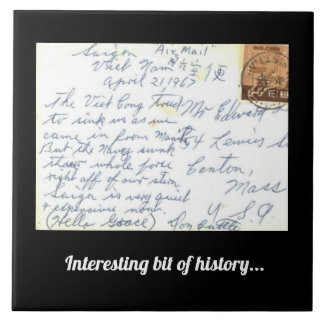 Saigon Air Mail
Viet Nam 便
April 21 1967
The Viet Cong tried Mr Edward
to sink us as we
came in from Manila 54 Lewis St
But the Navy sunk
their whole force Canton,
right off of our stern Mass
Saigon is very quiet
& expensive now. U.S.A
(Hello Grace) Joe
VIET-NAM
Interesting bit of history...